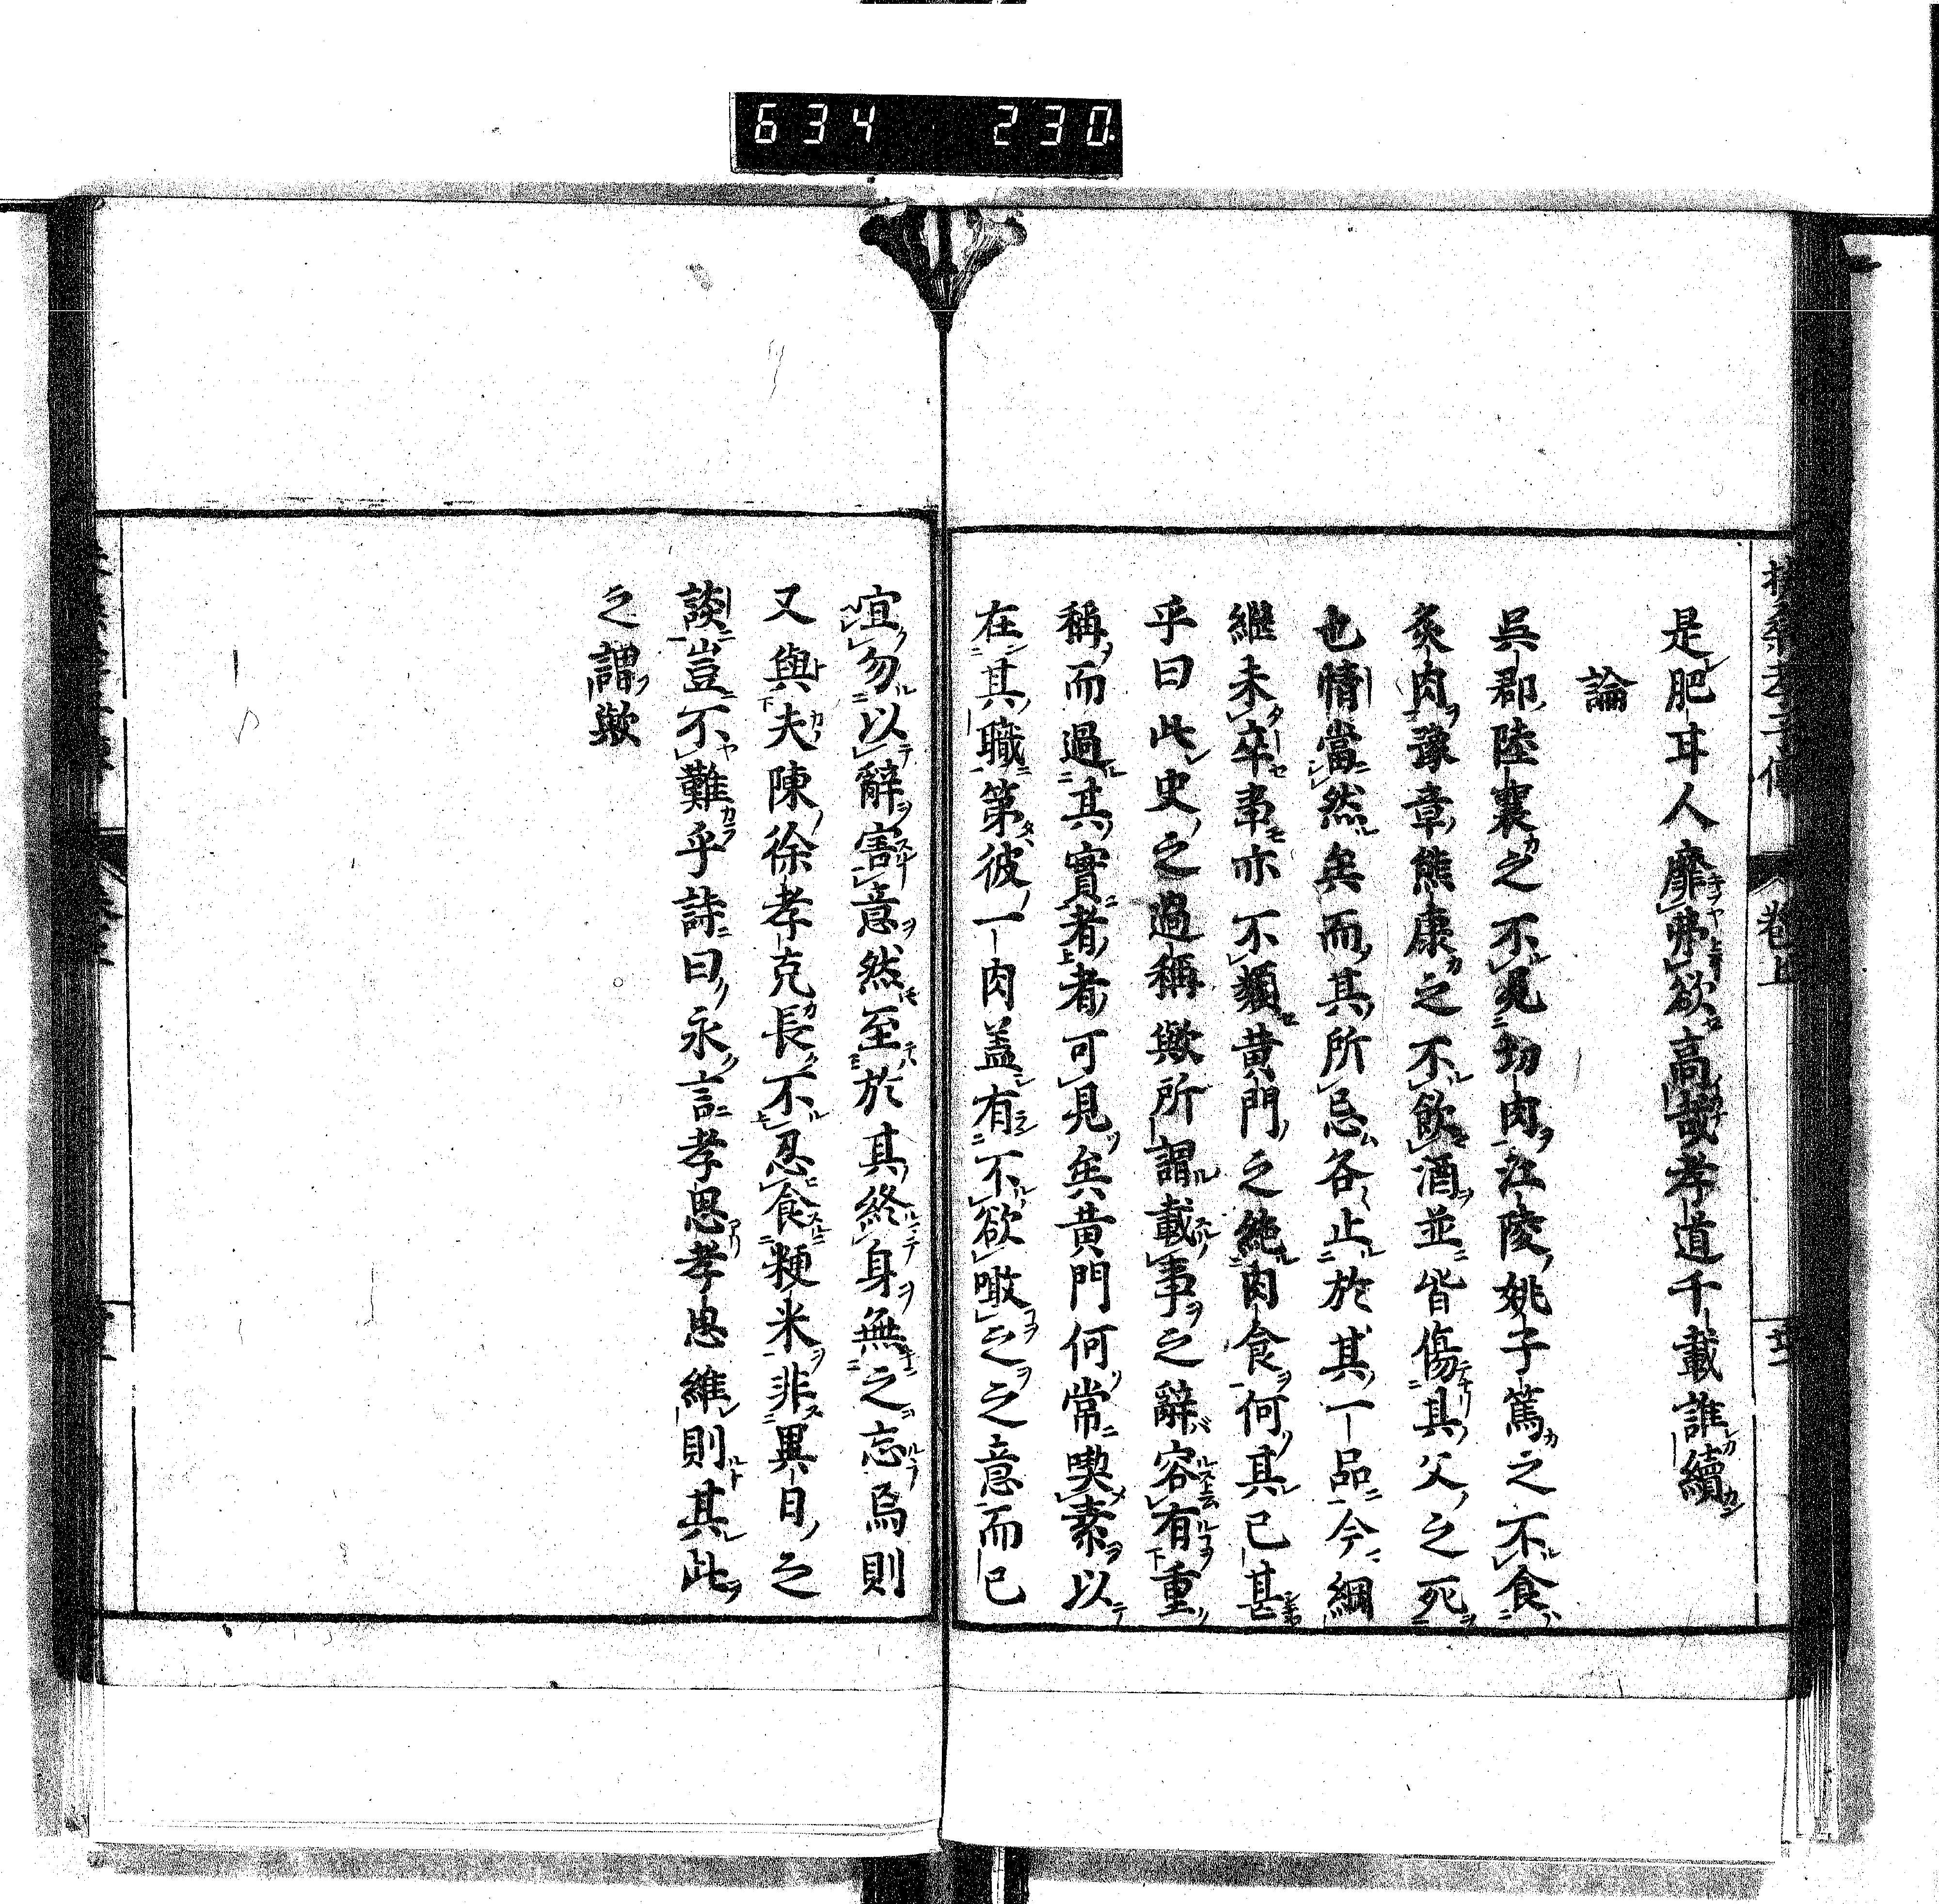 634 230
是肥耳人靡弗欲高哉孝道千載誰續
論
吳郡陸襄之不見切肉江陵姚子篤之不食
炙肉豫章熊康之不飲酒並皆傷其父之死
也情當然矣而其所忌各止於其一品今綱
繼未卒事亦不類黃門之絶肉食何其已甚
乎曰此史之過稱歟所謂載事之辭容有重
稱而過其實者者可見矣黃門何常喫素以
在其職第彼一肉蓋有不欲噉之之意而已
宜勿以辭害意然至於其終身無之忘焉則
又與夫陳徐孝克長不忍食粳米非異日之
談豈不難乎詩曰永言孝思孝思維則其此
之謂歟
卷上